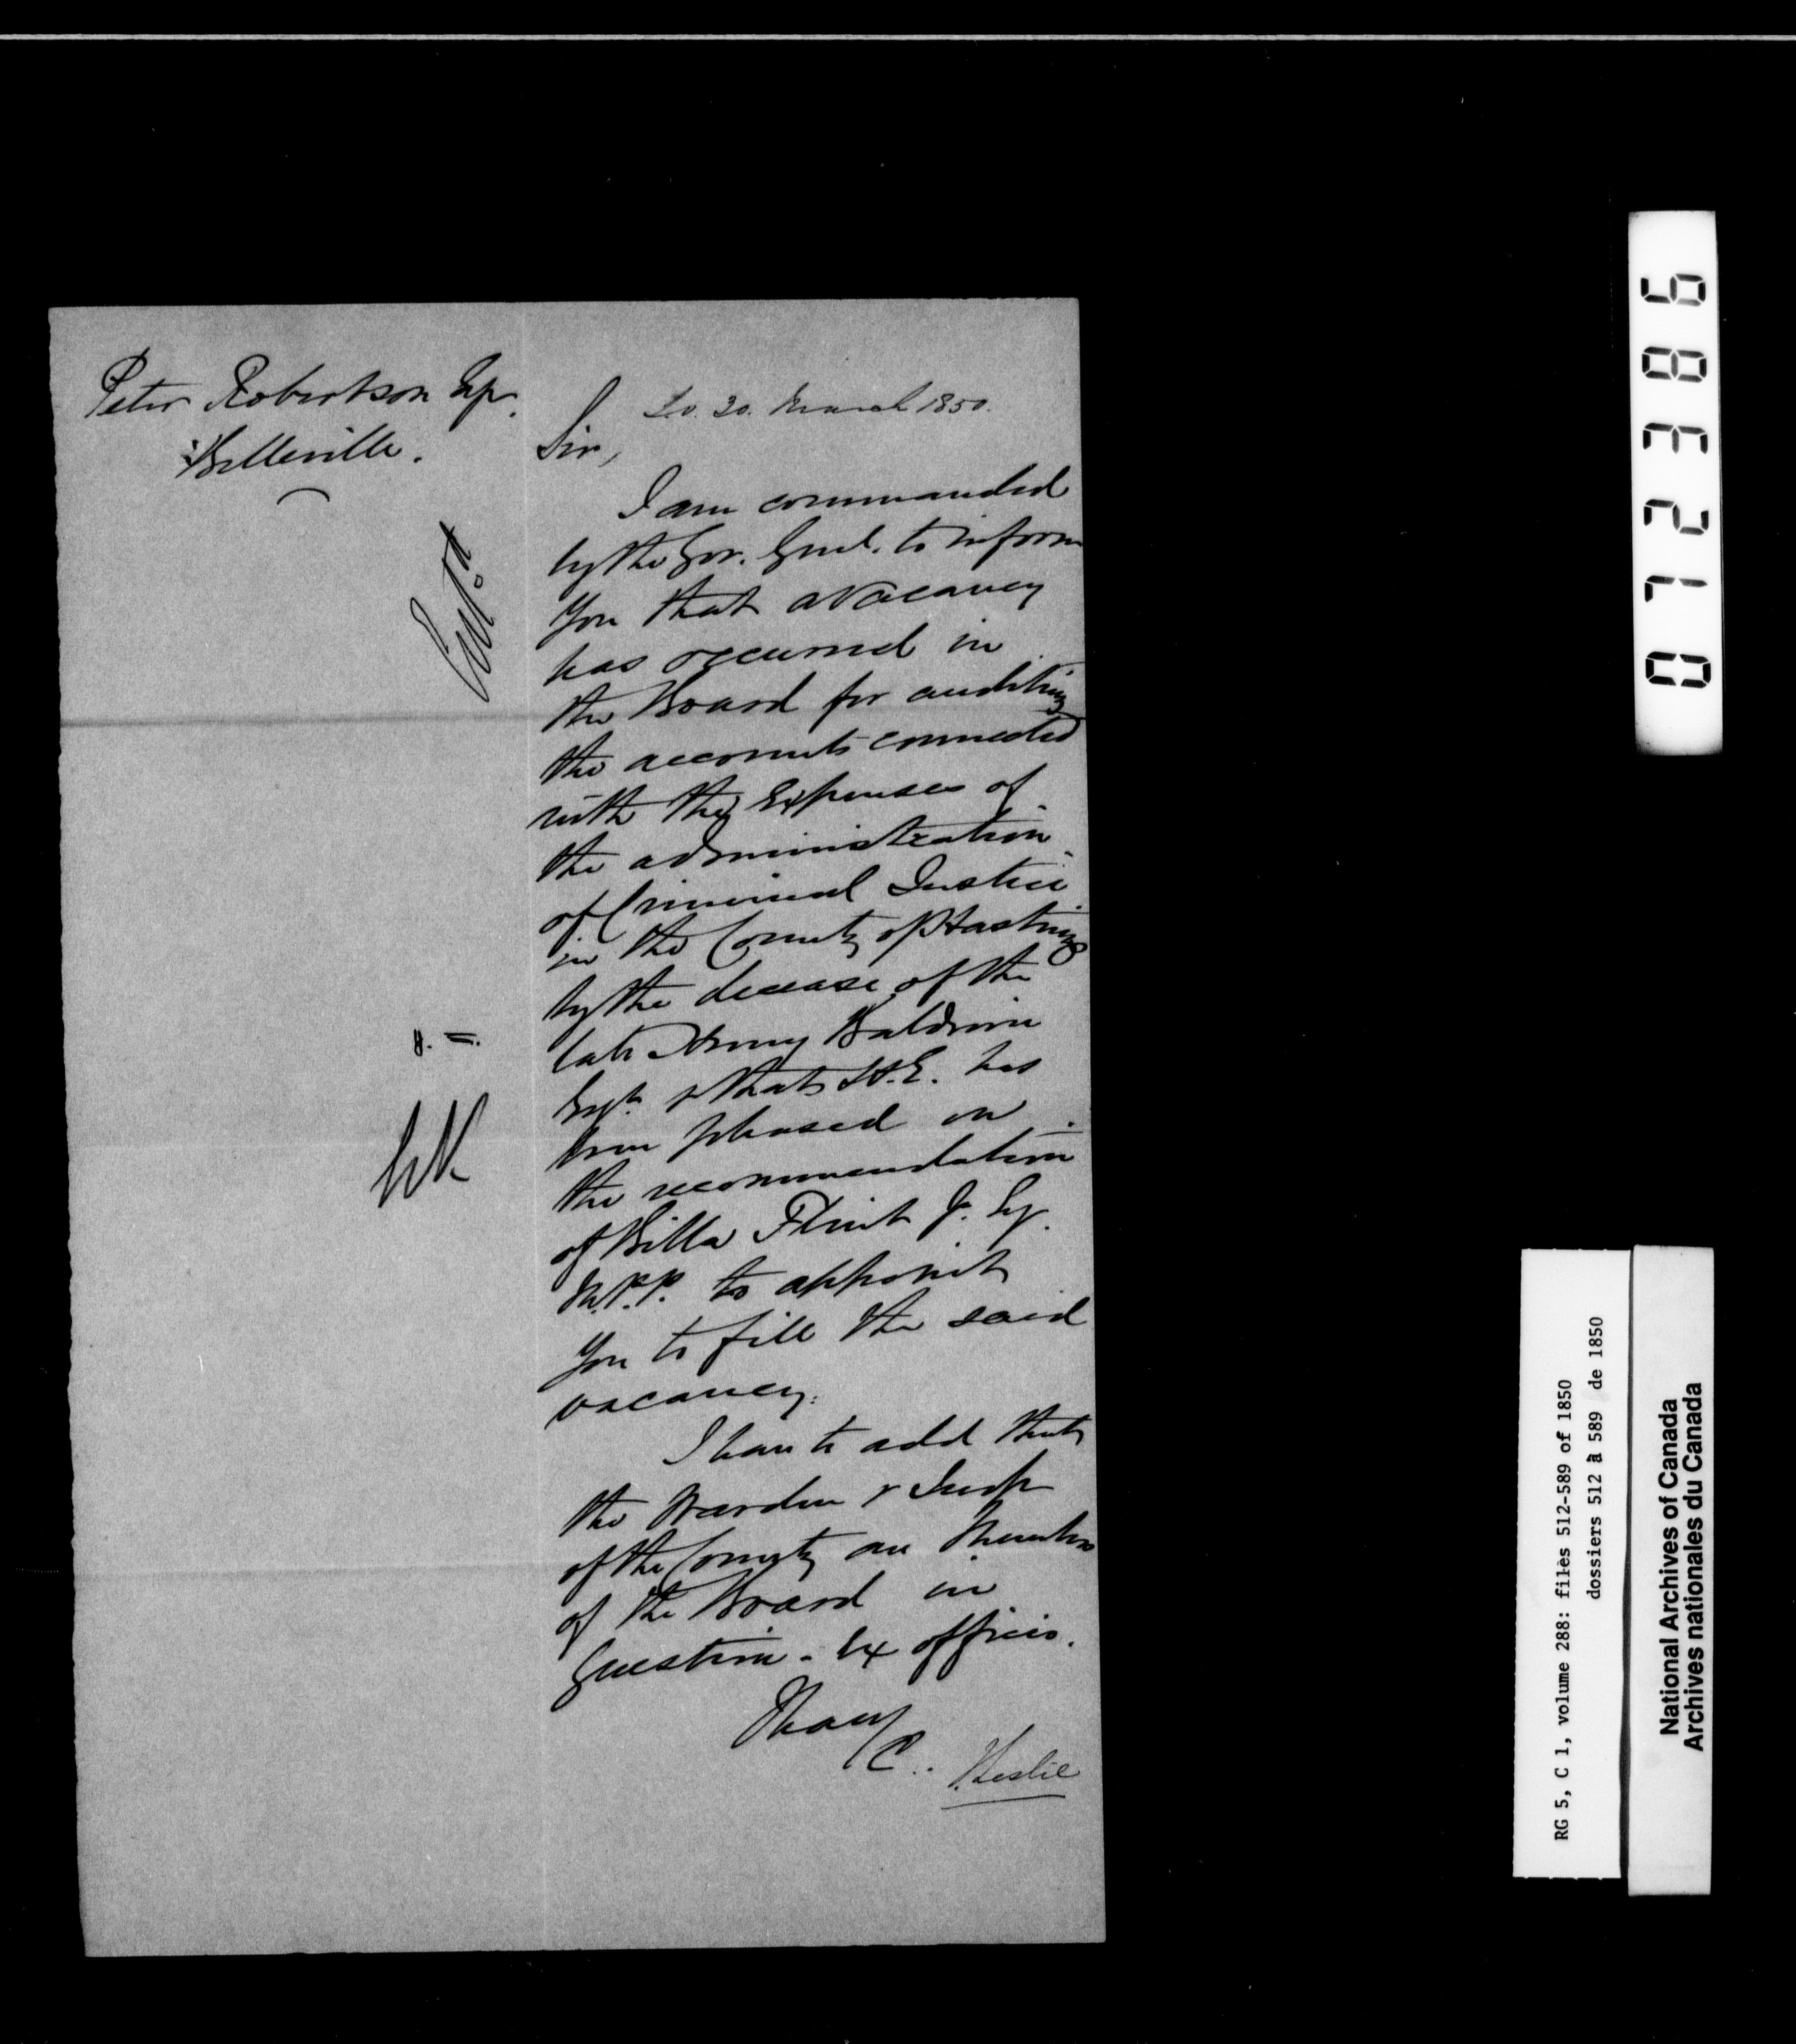 Peter Robertson Esqr.
Belleville.
Ent.d
20. March 1850.
Sir,
I am commanded
by the Gov. Genl. to inform
you that a vacancy
has occurred in
the Board for auditing
the accounts connected
with the Expenses of
the administration
of Criminal Justice
in the County of Hastings
by the decease of the
late Henry Baldwin
Esqr. & that H.E. has
been pleased on
the recommendation
of Billa Flint Jr. Esqr.
M.P.P. to appoint
you to fill the said
vacancy.
I have to add that
the Warden & Judge
of the County are Members
of the Board in
Question - Ex officio.
I have
&c.. J. Leslie
072386
RG 5, C 1, volume 288: files 512-589 of 1850
dossiers 512 à 589 de 1850
National Archives of Canada
Archives nationales du Canada